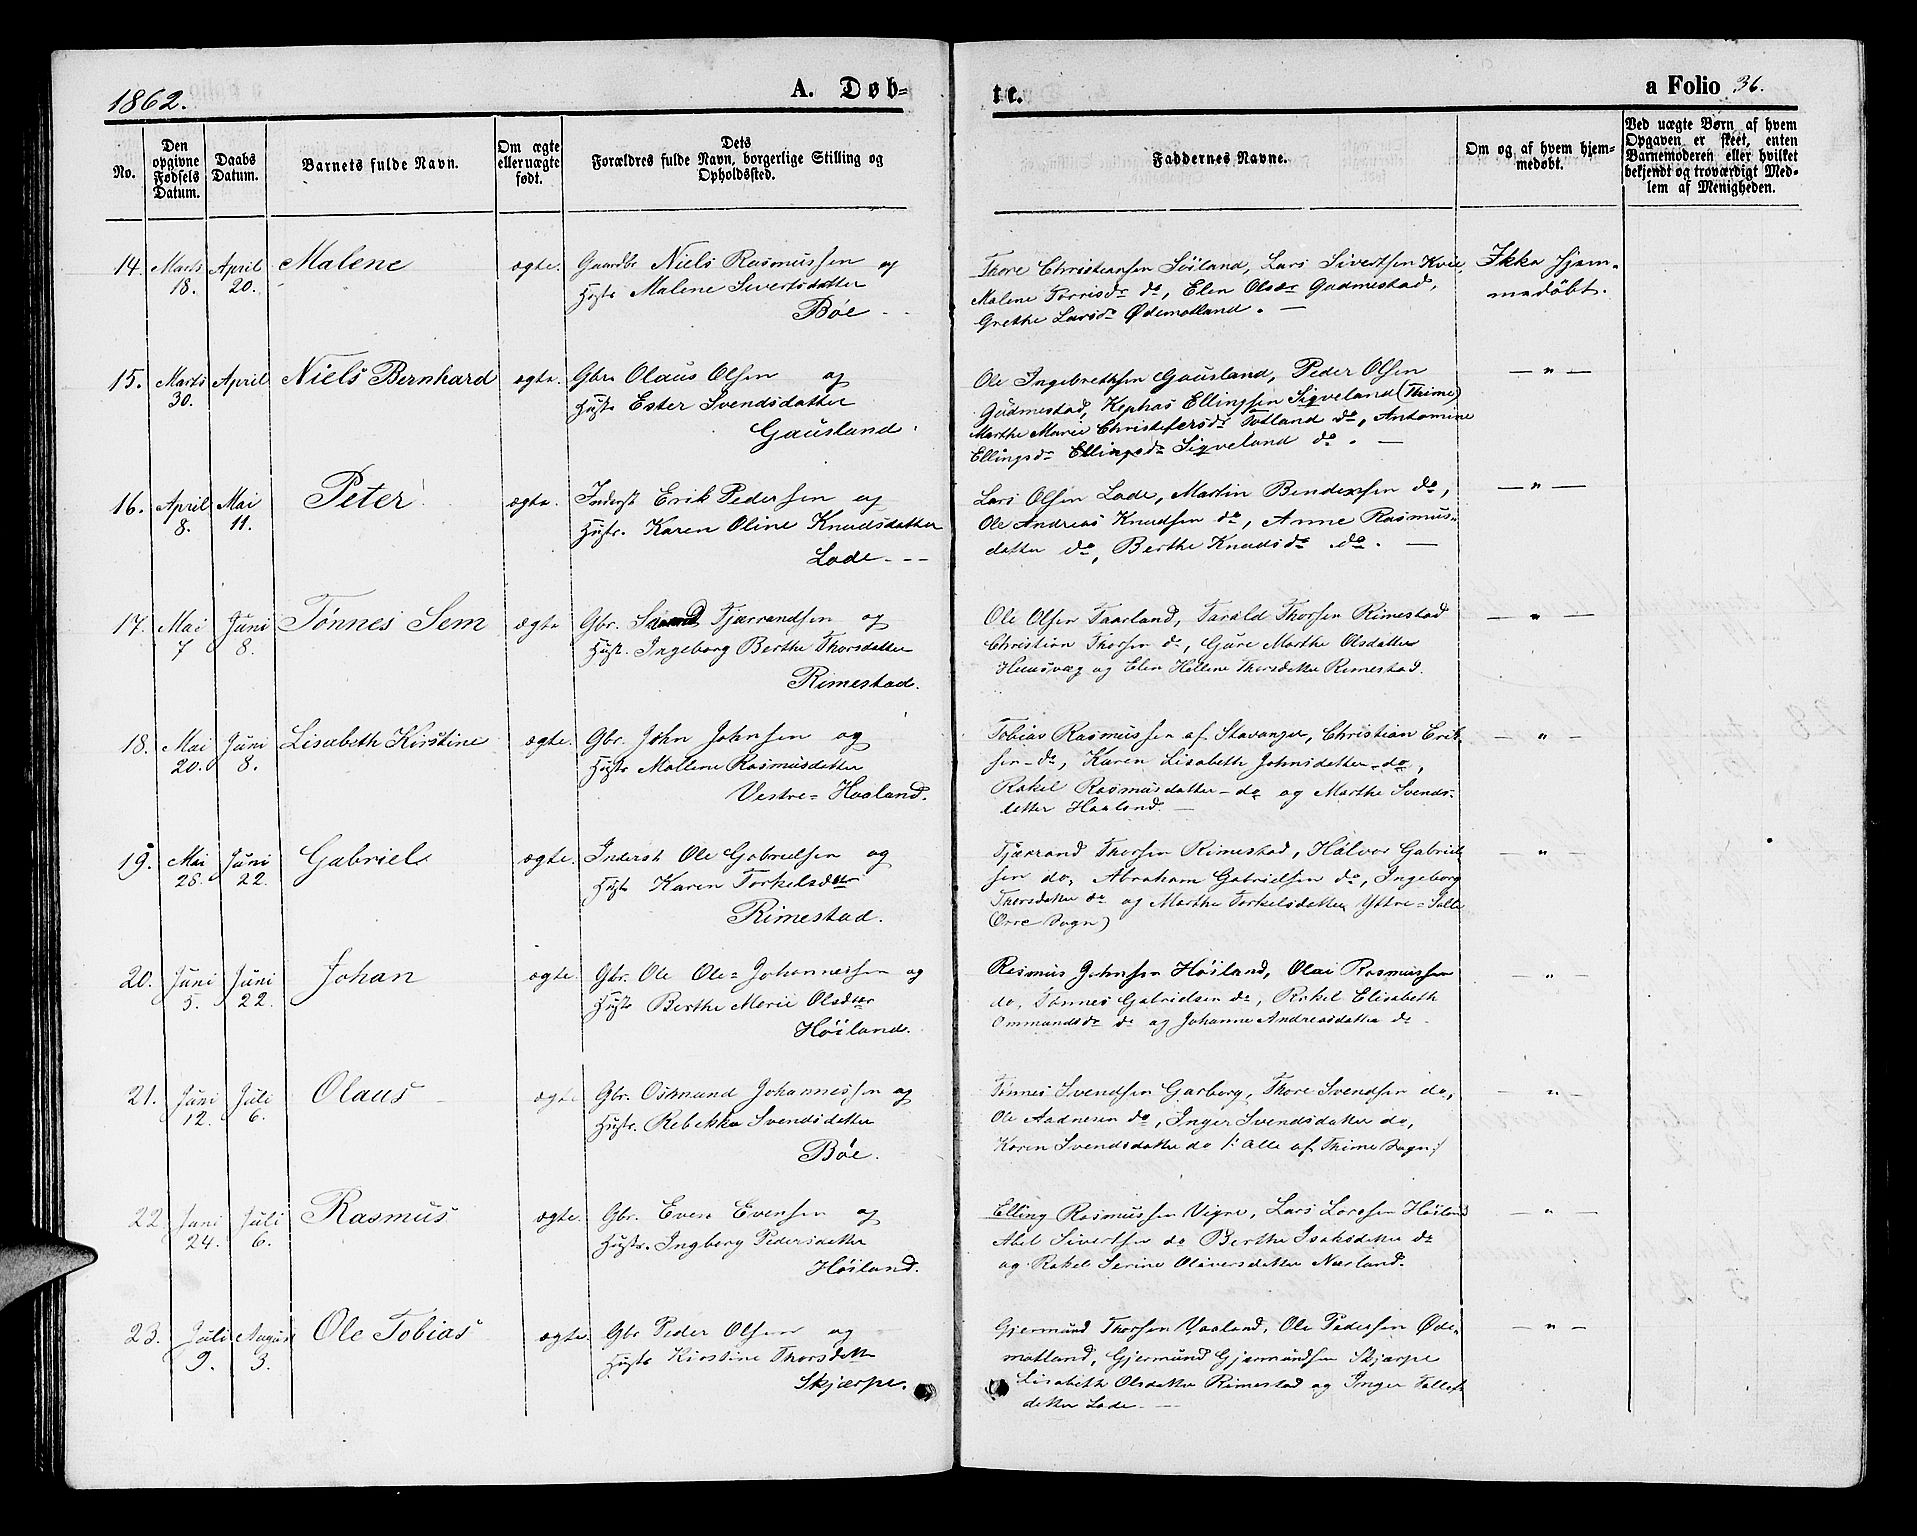 1862.
A. Døb-
te.
a Folio 36.
No.
Den opgivne Fødsels Datum.
Daabs Datum.
Barnets fulde Navn.
Om ægte eller uægte født.
Dets Forældres fulde Navn, borgerlige Stilling og Opholdssted.
Faddernes Navne.
Om og af hvem hjem-
medøbt.
Ved uægte Børn af hvem
Opgaven er skeet, enten
Barnemoderen eller hvilket
bekjendt og troværdigt Med-
lem af Menigheden.
14. Marts 18. April 20. Malene ægte. Gaardbr Niels Rasmussen og
Hust Malene Sivertsdatter
Bøe
Thore Christiansen Höiland, Lars Sivertsen Kvie,
Malene Torrisdr do, Elen Olsdr Gudmestad,
Grethe Larsdr Ødemotland. —
Ikke hjem-
medøbt.
15. Marts 30. April Niels Bernhard ægte. Gbr. Olaus Olsen og
Hust Ester Svendsdatter
Gausland.
Ole Ingebrethsen Gausland, Peder Olsen
Gudmestad, Kephas Ellingsen Sigveland (Thime)
Marthe Marie Christefersdr Totland do, Antomine
Ellingsdr Ellingsdr Sigveland do. —
— " —
16. April 8. Mai 11. Peter ægte. Inderst Erik Pedersen og
Hustr. Karen Oline Knudsdatter
Lode. - -
Lars Olsen Lode, Martin Bendixsen do,
Ole Andreas Knudsen do, Anne Rasmus-
datter do, Berthe Knudsdr do. —
— " —
17. Mai 7 Juni 8. Tønnes Sem ægte Gbr. Tjærrandsen og
Hust. Ingeborg Berthe Thorsdatter
Rimestad.
Ole Olsen Taarland, Tarald Thorsen Rimestad
Christian Thorsen do, Gure Marthe Olsdatter
og Elen Hellene Thorsdatter Rimestad.
— " —
18. Mai 20. Juni 8. Lisabeth Kirstine ægte. Gbr. John Johnsen og
Hustr Mallene Rasmusdatter
Vestre- Haaland.
Tobias Rasmussen af Stavanger, Christian Erik-
sen - do, Karen Lisabeth Johnsdatter - do,
Rakel Rasmusdatter - do og Marthe Svends-
datter Haaland. —
— " —
19. Mai 28. Juni 22. Gabriel ægte. Inderst Ole Gabrielsen og
Hust Karen Torkelsdtter
Rimestad.
Tjærrand Thorsen Rimestad, Halvor Gabriel-
sen do, Abraham Gabrielsen do, Ingeborg
Thorsdatter do og Marthe Torkelsdatter Yttre-Salte
Orre Sogn)
— " —
20. Juni 5. Juni 22. Johan ægte. Gbr. Ole Ole- Johannessen og
Hust Berthe Marie Olsdtter
Höiland.
Rasmus Johnsen Höiland, Olai Rasmussen
do, Tønnes Gabrielsen do, Rakel Elisabeth
Ommundsdr do og Johanne Andreasdatter do.
— " —
21. Juni 12. Juli 6. Olaus ægte Gbr. Osmund Johannessen og
Hustr. Rebekka Svendsdatter
Bøe.
Tønnes Svendsen Garborg, Thore Svendsen do,
Ole Aadnesen do, Inger Svendsdatter do,
Karen Svendsdatter do /: Alle af Thime Sogn:/
— " —
22. Juni 24. Juli 6. Rasmus ægte. Gbr. Even Evensen og
Hustr. Ingborg Pedersdatter
Höiland.
Elling Rasmussen Vigre, Lars Larsen Höiland
Abel Sivertsen do Berthe Isaksdatter do
og Rakel Serine Oliversdatter Nærland.
— " —
23. Juli 9. August 3. Ole Tobias ægte. Gbr Peder Olsen og
Hust Kirstine Thorsdatter
Skjærpe.
Gjermund Thorsen Vaaland, Ole Pedersen Øde-
motland, Gjermund Gjermundsen Skjærpe
Lisabeth Olsdatter Rimestad og Inger Tollefs-
datter Lode. —
— " —